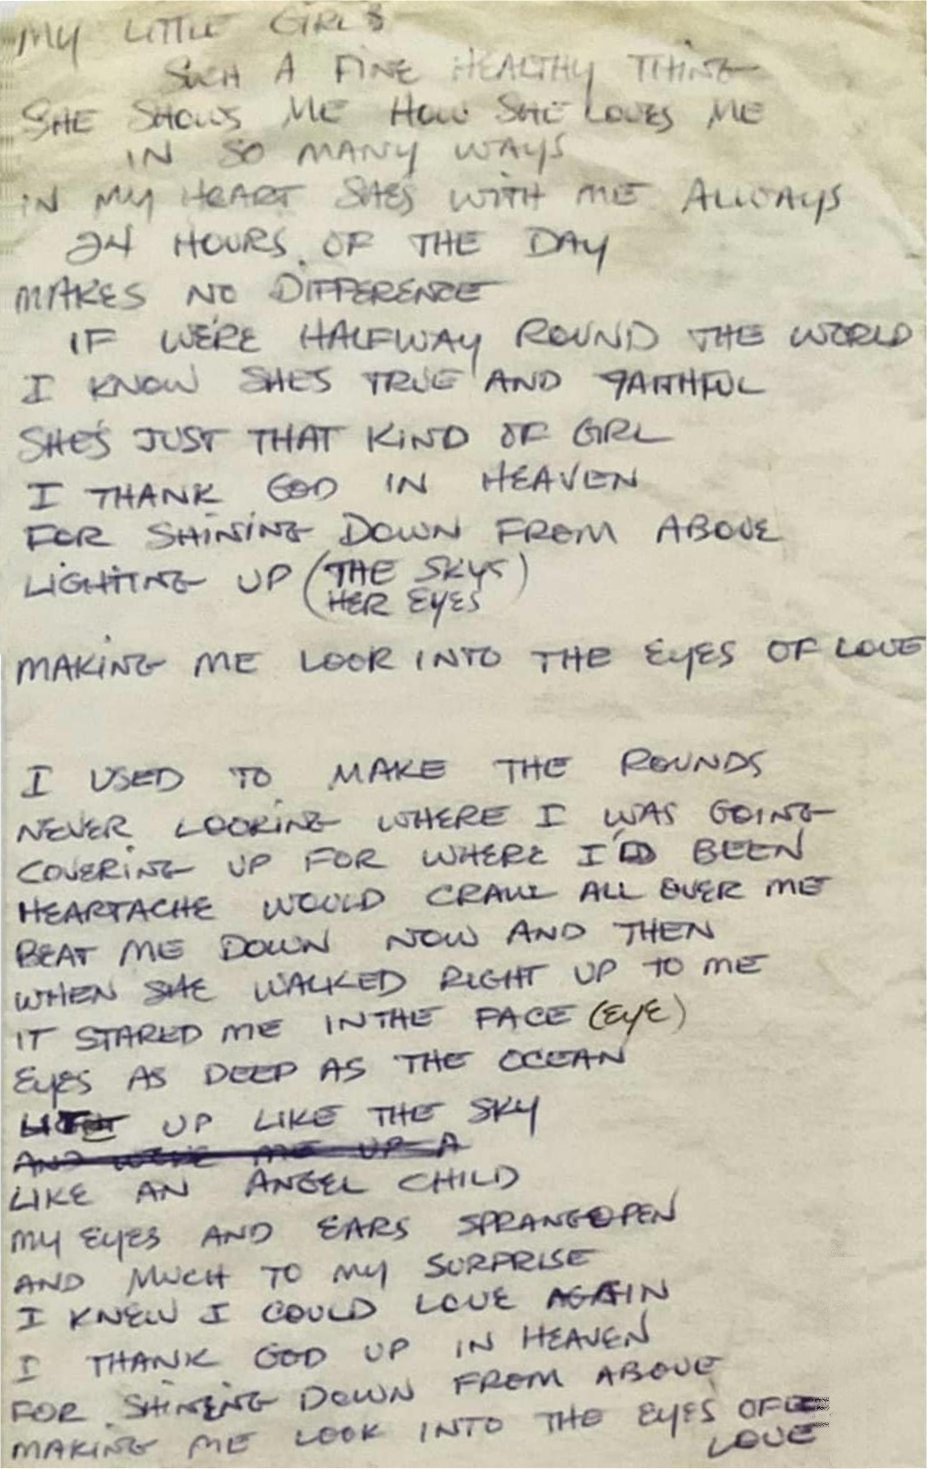 MY LITTLE GIRLS
SUCH A FINE HEALTHY THING
SHE SHOWS ME HOW SHE LOVES ME
IN SO MANY WAYS
IN MY HEART SHE'S WITH ME ALLWAYS
24 HOURS OF THE DAY
MAKES NO DIFFERENCE
IF WE'RE HALFWAY ROUND THE WORLD
I KNOW SHE'S TRUE AND FAITHFUL
SHE'S JUST THAT KIND OF GIRL
I THANK GOD IN HEAVEN
FOR SHINING DOWN FROM ABOVE
LIGHTING UP (THE SKYS)
(HER EYES
MAKING ME LOOK INTO THE EYES OF LOVE
I USED TO MAKE THE ROUNDS
NEVER LOOKING WHERE I WAS GOING
COVERING UP FOR WHERE I'D BEEN
HEARTACHE WOULD CRAWL ALL OVER ME
BEAT ME DOWN NOW AND THEN
WHEN SHE WALKED RIGHT UP TO ME
IT STARED ME IN THE FACE (EYE)
EYES AS DEEP AS THE OCEAN
UP LIKE THE SKY
AND WOKE ME UP A
LIKE AN ANGEL CHILD
MY EYES AND EARS SPRANG OPEN
AND MUCH TO MY SURPRISE
I KNEW I COULD LOVE AGAIN
I THANK GOD UP IN HEAVEN
FOR SHINING DOWN FROM ABOVE
MAKING ME LOOK INTO THE EYES OF
LOVE